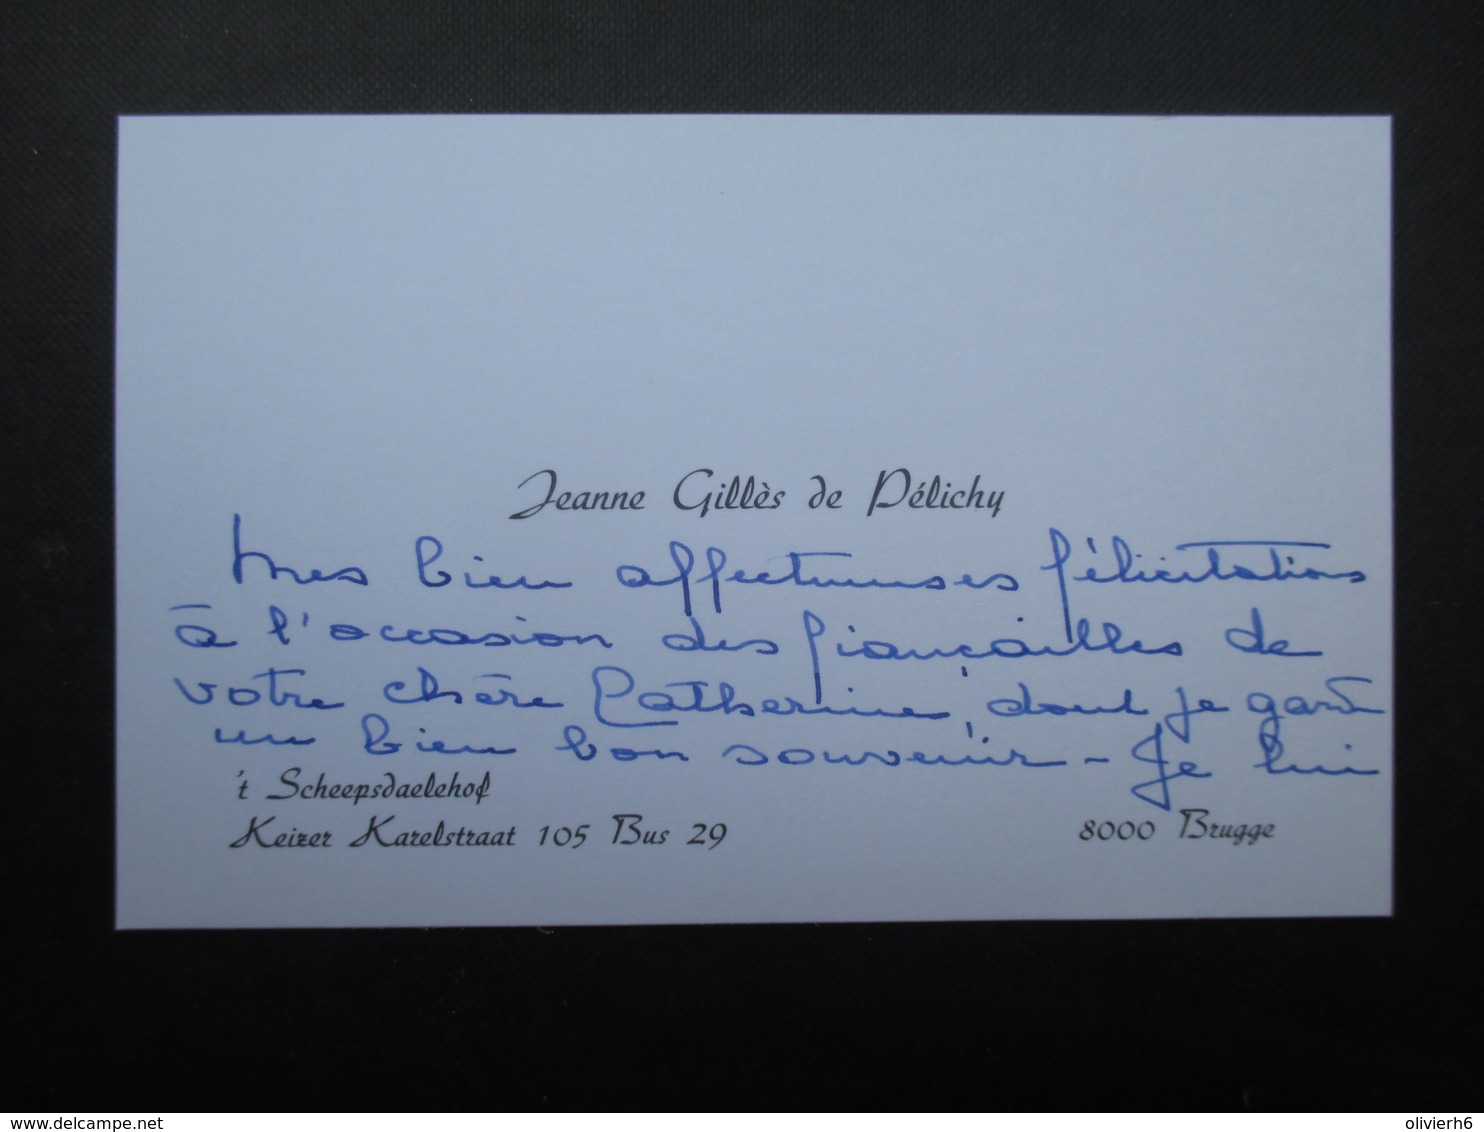 Jeanne Gillès de Pélichy
Mes bien affectueuses félicitations
à l'occasion des fiançailles de
votre chère Catherine, dont je garde
un bien bon souvenir - Je lui
't Scheepsdaelehof
Keizer Karelstraat 105 Bus 29
8000 Brugge
delcampe.net
olivierh6